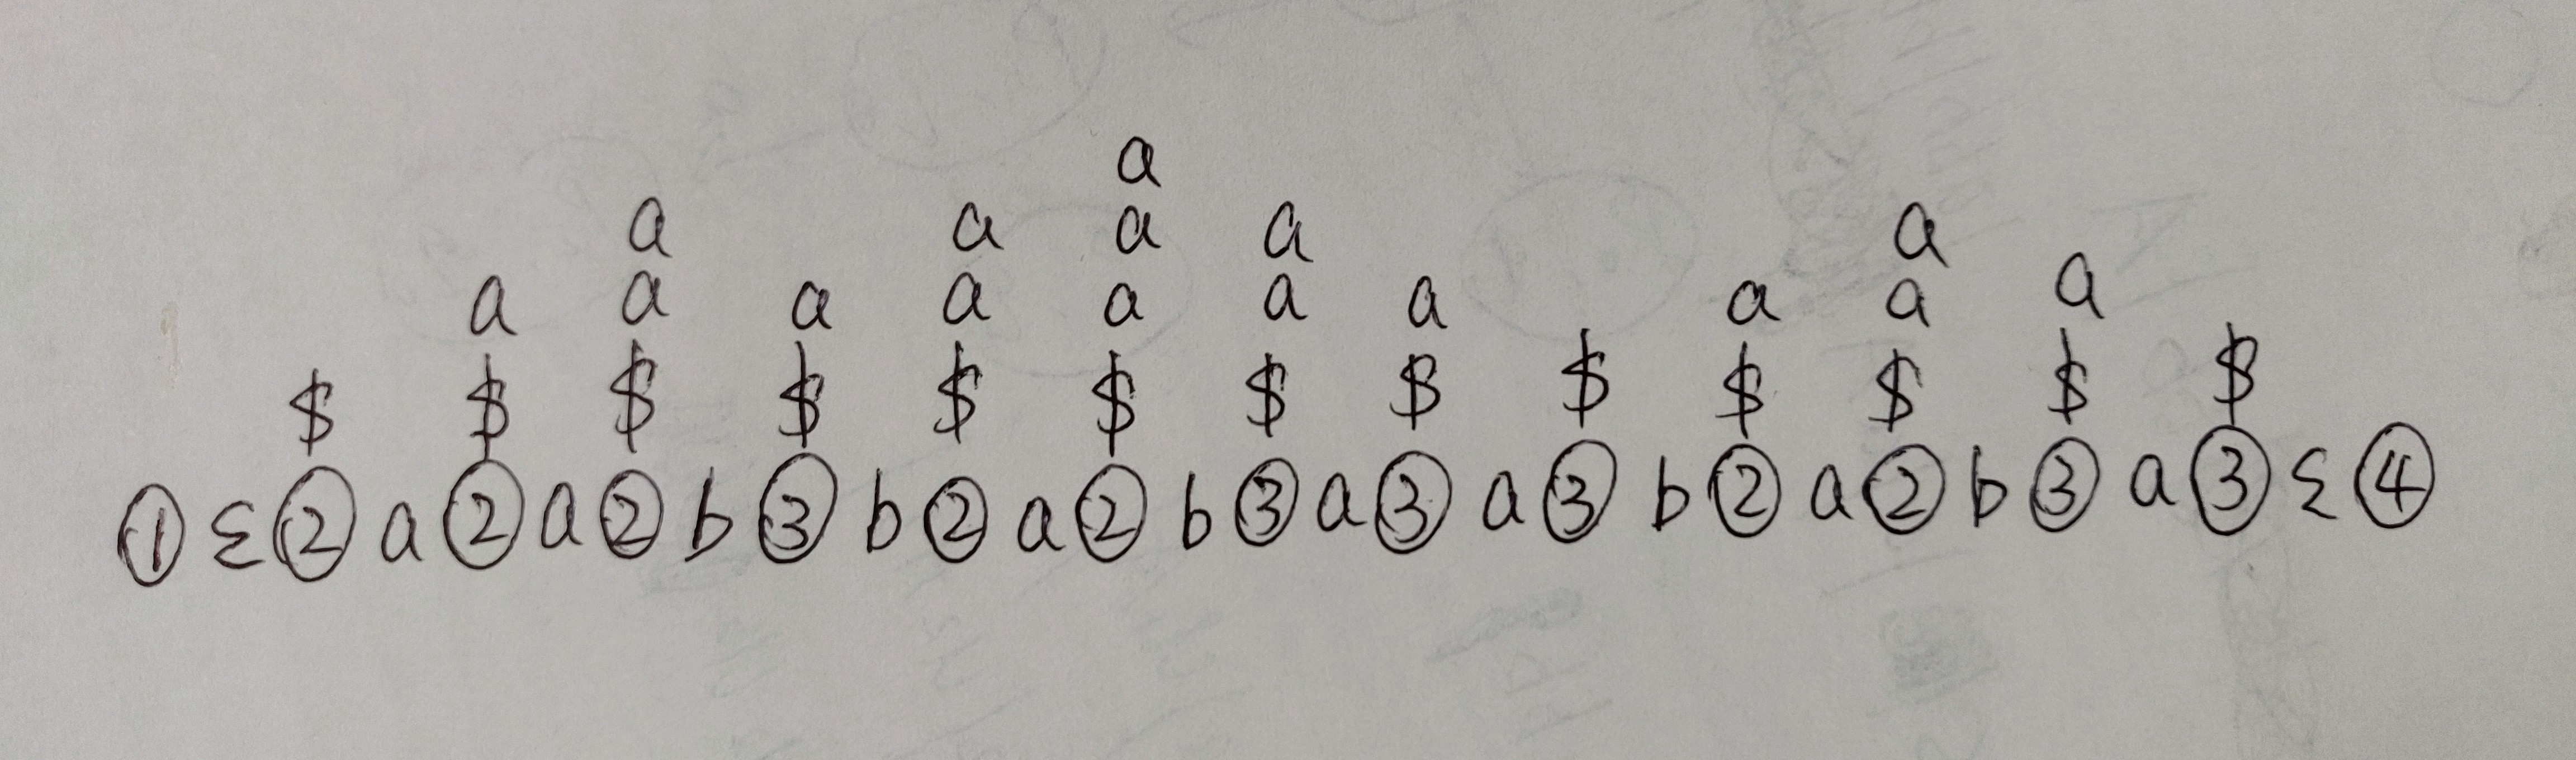 a
a a a a
a a a a a a a a a a
$ $ $ $ $ $ $ $ $ $ $ $ $
① ε ② a ② a ② b ③ b ② a ② b ③ a ③ a ③ b ② a ② b ③ a ③ ε ④